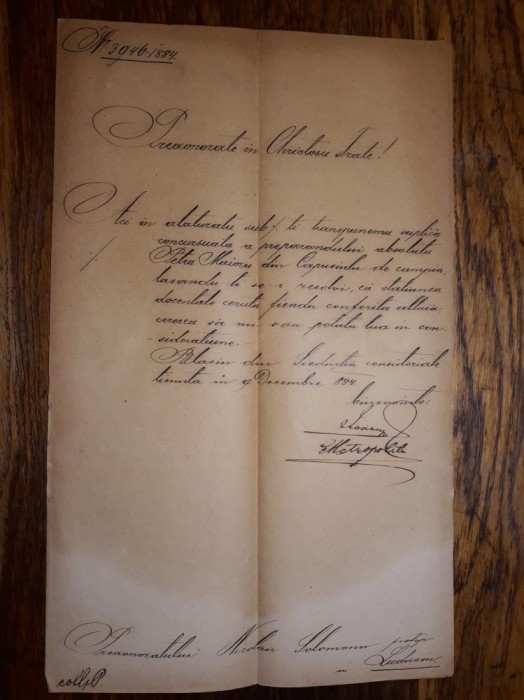 Nr 3946. 1884.
Preaonorate in Christosu Frate!
Aci in alaturatu sub ·/. ti transpunemu suplic'a
concursuala a preparandului absolutu
·/.
Petru Maioru din Capusiulu de campia,
lasandu ti-se a resolvi, că statiunea
docentale ceruta, fiendu conferita altuia,
cererea să nu s'au potutu lua in con-
sideratiune.
Blasiu din Siedinti'a consistoriale
tienuta in 9 Decembre 884
binevoit
Ioanu
Metropolitu
Preaonoratului Nicolau Solomonu protop
Ludusiu
coll P.